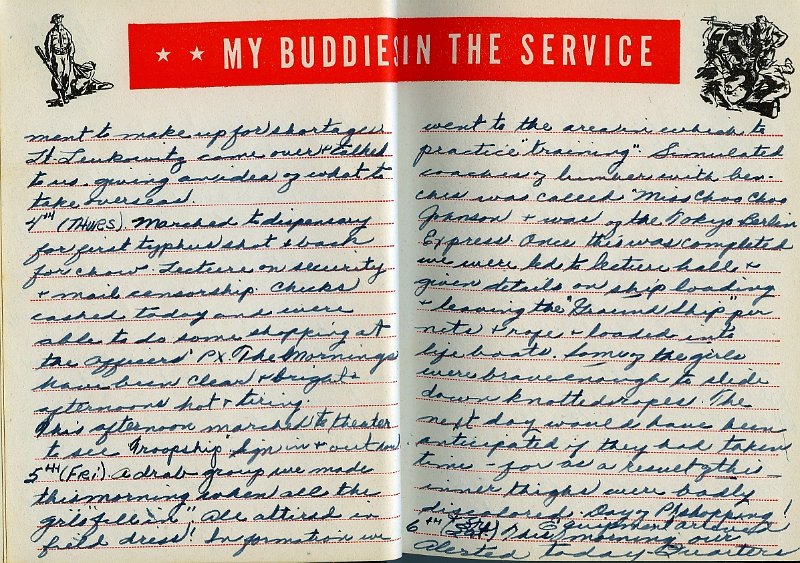 ★ ★ MY BUDDIES IN THE SERVICE
ment to make up for shortages
Lt. Leukowitz came over + talked
to us giving an idea of what to
take overseas.
4TH (THURS) Marched to dispensary
for first typhus shot & back
for chow. Lecture on security
+ mail censorship. Checks
cashed today and were
able to do some shopping at
the officers' PX. The mornings
have been clear + bright
afternoons hot + tiring.
This afternoon marched to theater
to see "Troopship" sign in + out
5TH (FRI) A drab group we made
this morning when all the
girls "fell in". All attired in
field dress! In formation we
went to the area in which to
practice "training". Simulated
coaches of lumber with ben-
ches was called "Miss Choo Choo
Johnson + was of the Tokyo Berlin
Express. Once this was completed
we were led to lecture hall +
given details on ship loading
+ leaving the "Ground Ship" per
nets + rope + loaded into
life boats. Some of the girls
were brave enough to slide
down knotted ropes. The
next day would have been
anticipated if they had taken
time - for as a result of the
inner thighs were badly
discolored. Day of PX shopping!
6TH (Sat) This morning our
Equipment arrived
Alerted today - Quarters